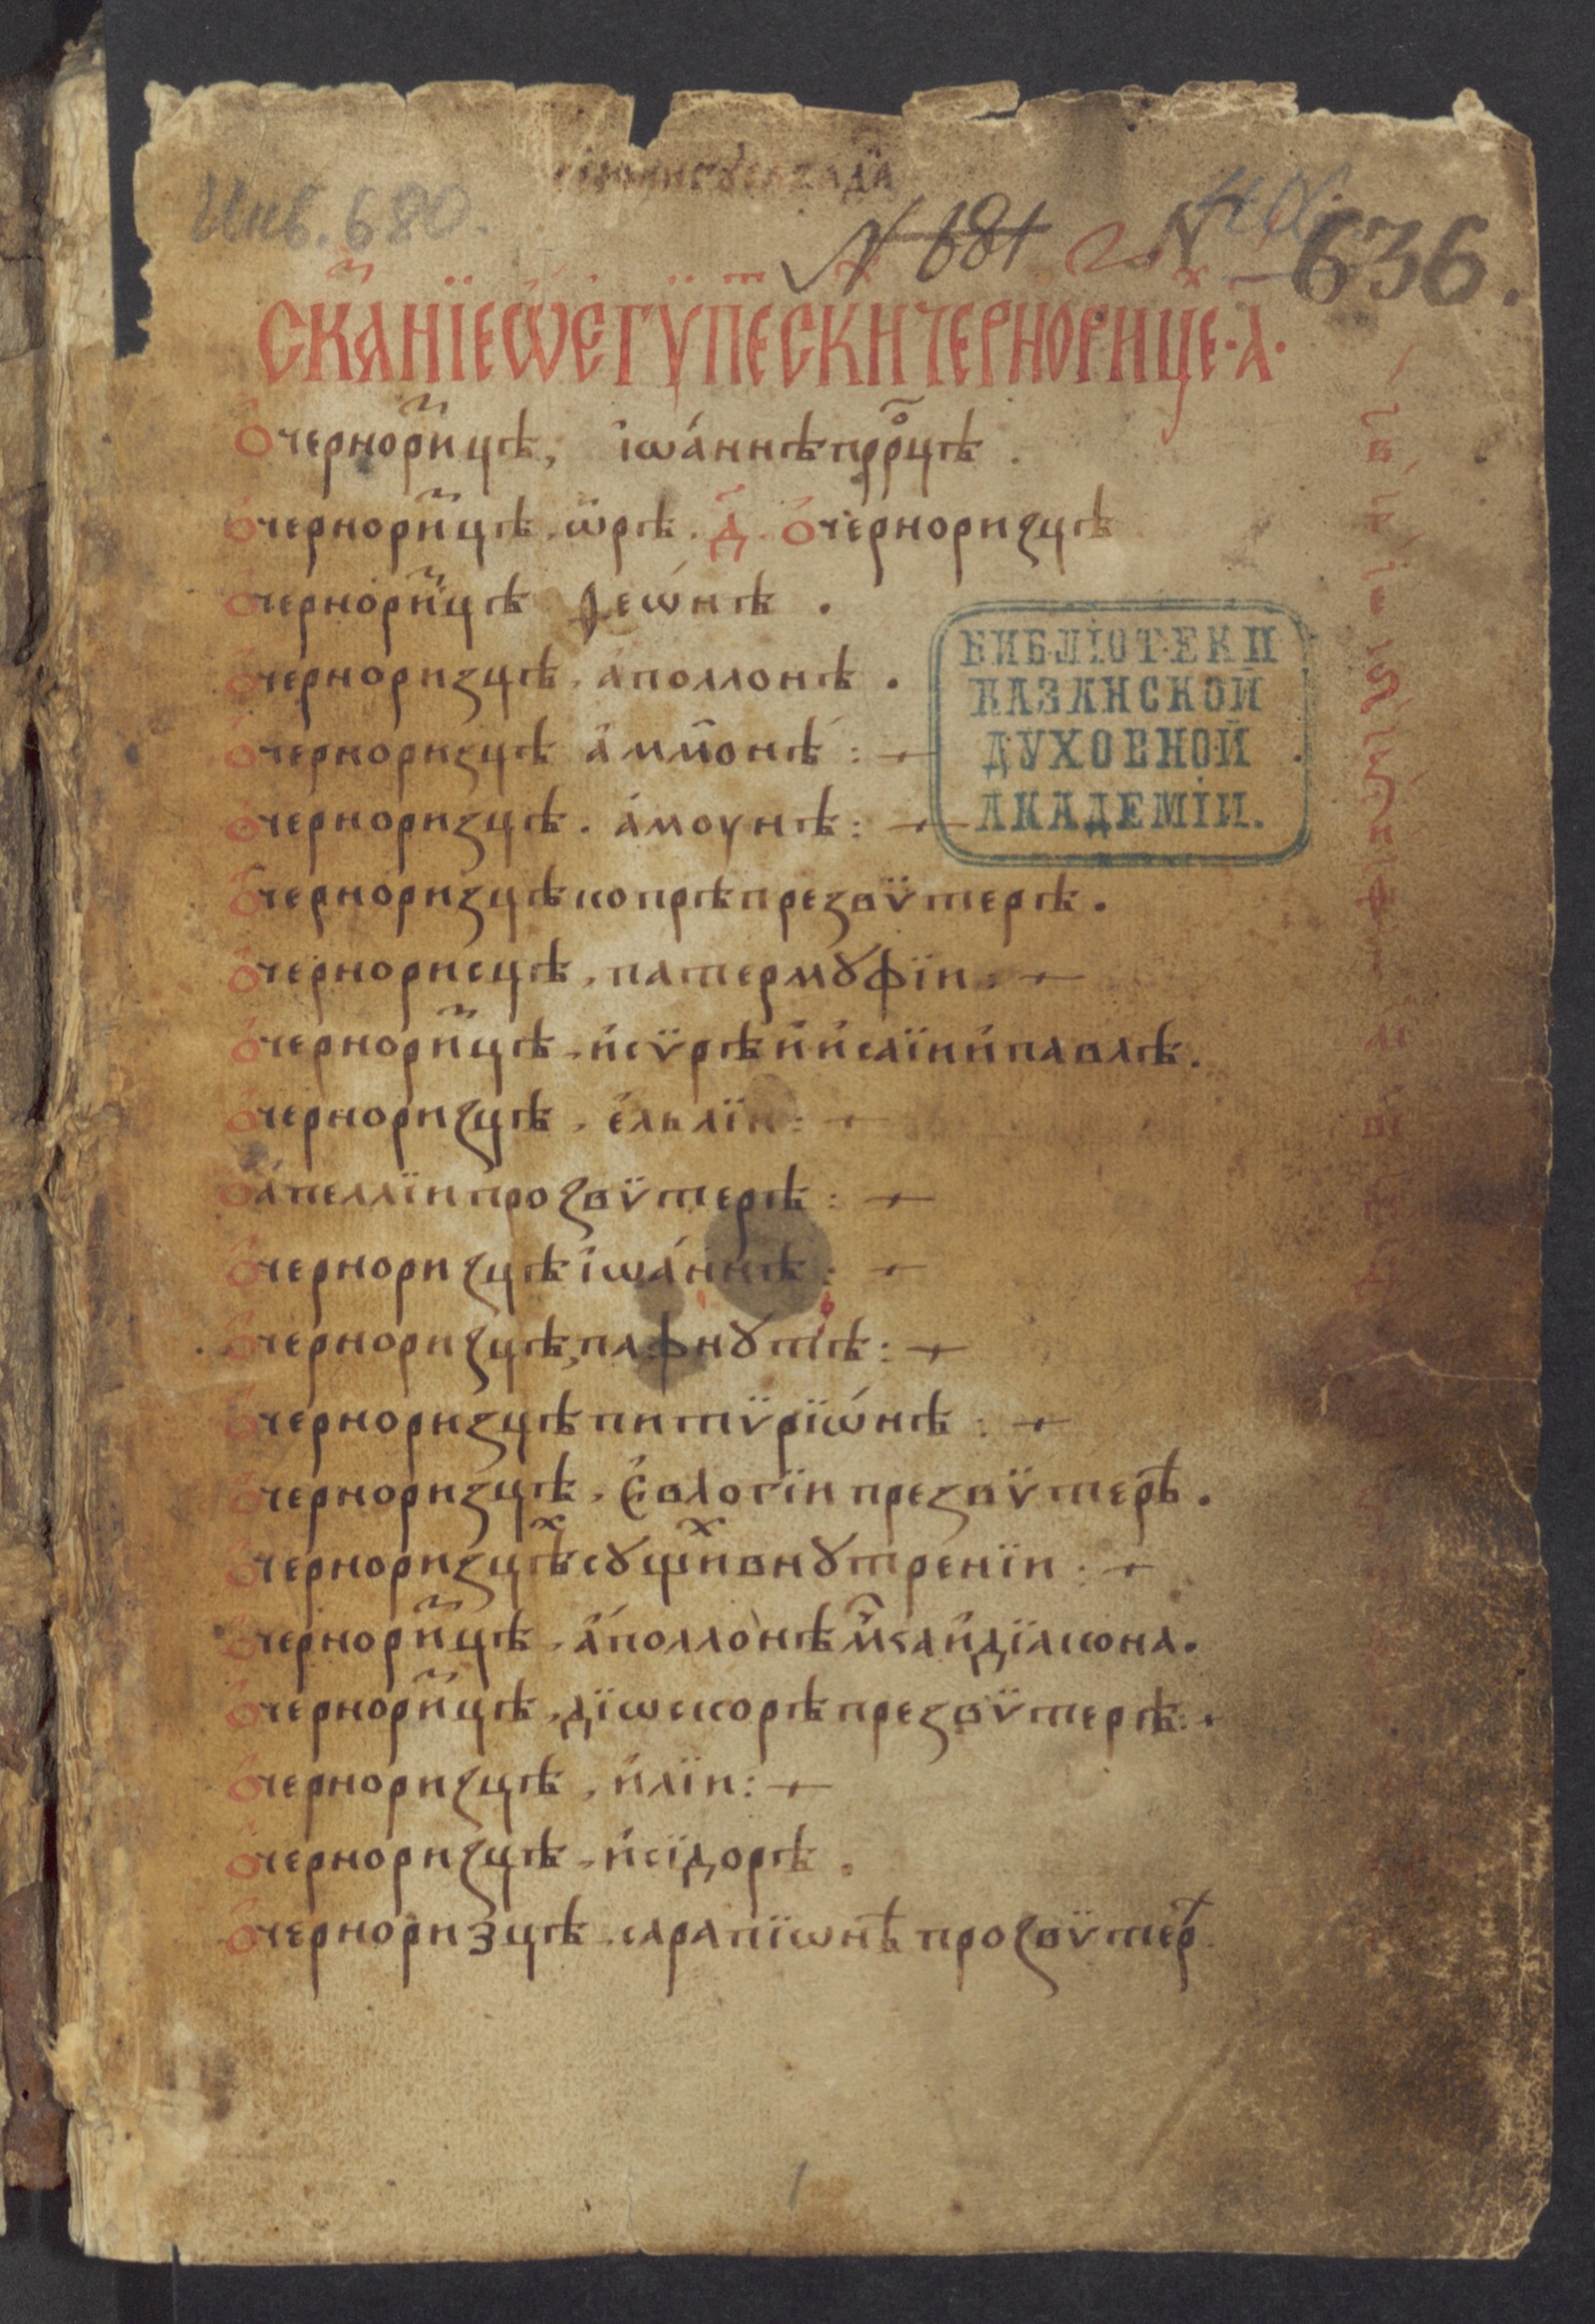 Инв. 680.
№ 681
№ 636.
Ска҇нїе ѡ҆ е҆гѵ́пе ски черноризце · а҃ ·
О черноризцѣ, іѡа́ннѣ прⷪр҇цѣ . в҃
О черноризцѣ . ѿрѣ . д҃ . О черноризцѣ
О черноризцѣ ѳеѡ́нѣ . е҃
О черноризцѣ . а҆поллонѣ . ѕ҃
О черноризцѣ а҆ммонѣ : з҃
О черноризцѣ . а҆моунѣ : и҃
О черноризцѣ копрѣ презвѵтерѣ . ѳ҃
О чернорисцѣ . патермꙋфїи : і҃
О черноризцѣ . и҆сѵрѣ и҆ и҆саїи и҆ павлѣ . аі
О черноризцѣ . е҆льлїи : ві
О а҆пеллїи прозвѵтерѣ : гі
О черноризцѣ іѡа́ннѣ : ді
О черноризцѣ, пафнꙋтїѣ :
О черноризцѣ питѵрїѡ́нѣ :
О черноризцѣ . є҆влогїи презвѵтерѣ .
О черноризцѣⷯ сꙋщиⷯ внꙋтренїи :
О черноризцѣ . а҆поллонѣ мⷱ҇ка и҆ дїакона .
О черноризцѣ . дїѡскорѣ презвѵтерѣ :
О черноризцѣ . и҆лїи :
О черноризцѣ . и҆сїдорѣ .
О черноризцѣ . сарапїѡнѣ прозвѵтер
БИБЛІОТЕКИ
КАЗАНСКОЙ
ДУХОВНОЙ
АКАДЕМІИ.
1